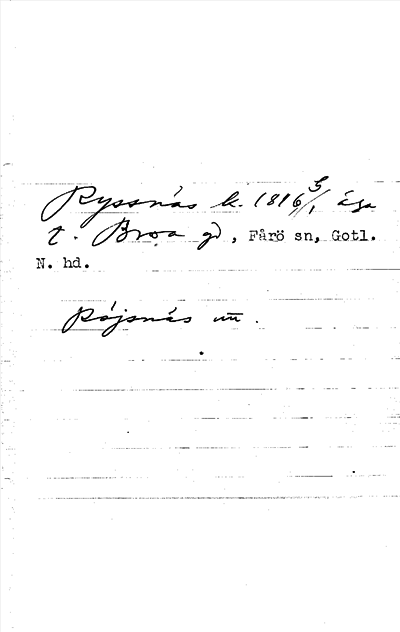 Ryssnäs k. (1816 5/1 äga
t. Broa gd, Fårö sn, Gotl.
N. hd.
Röjsnäs